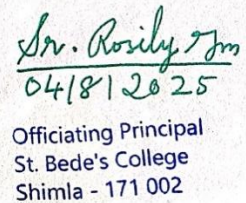 Sr. Rosily
04/8/2025
Officiating Principal
St. Bede's College
Shimla - 171 002